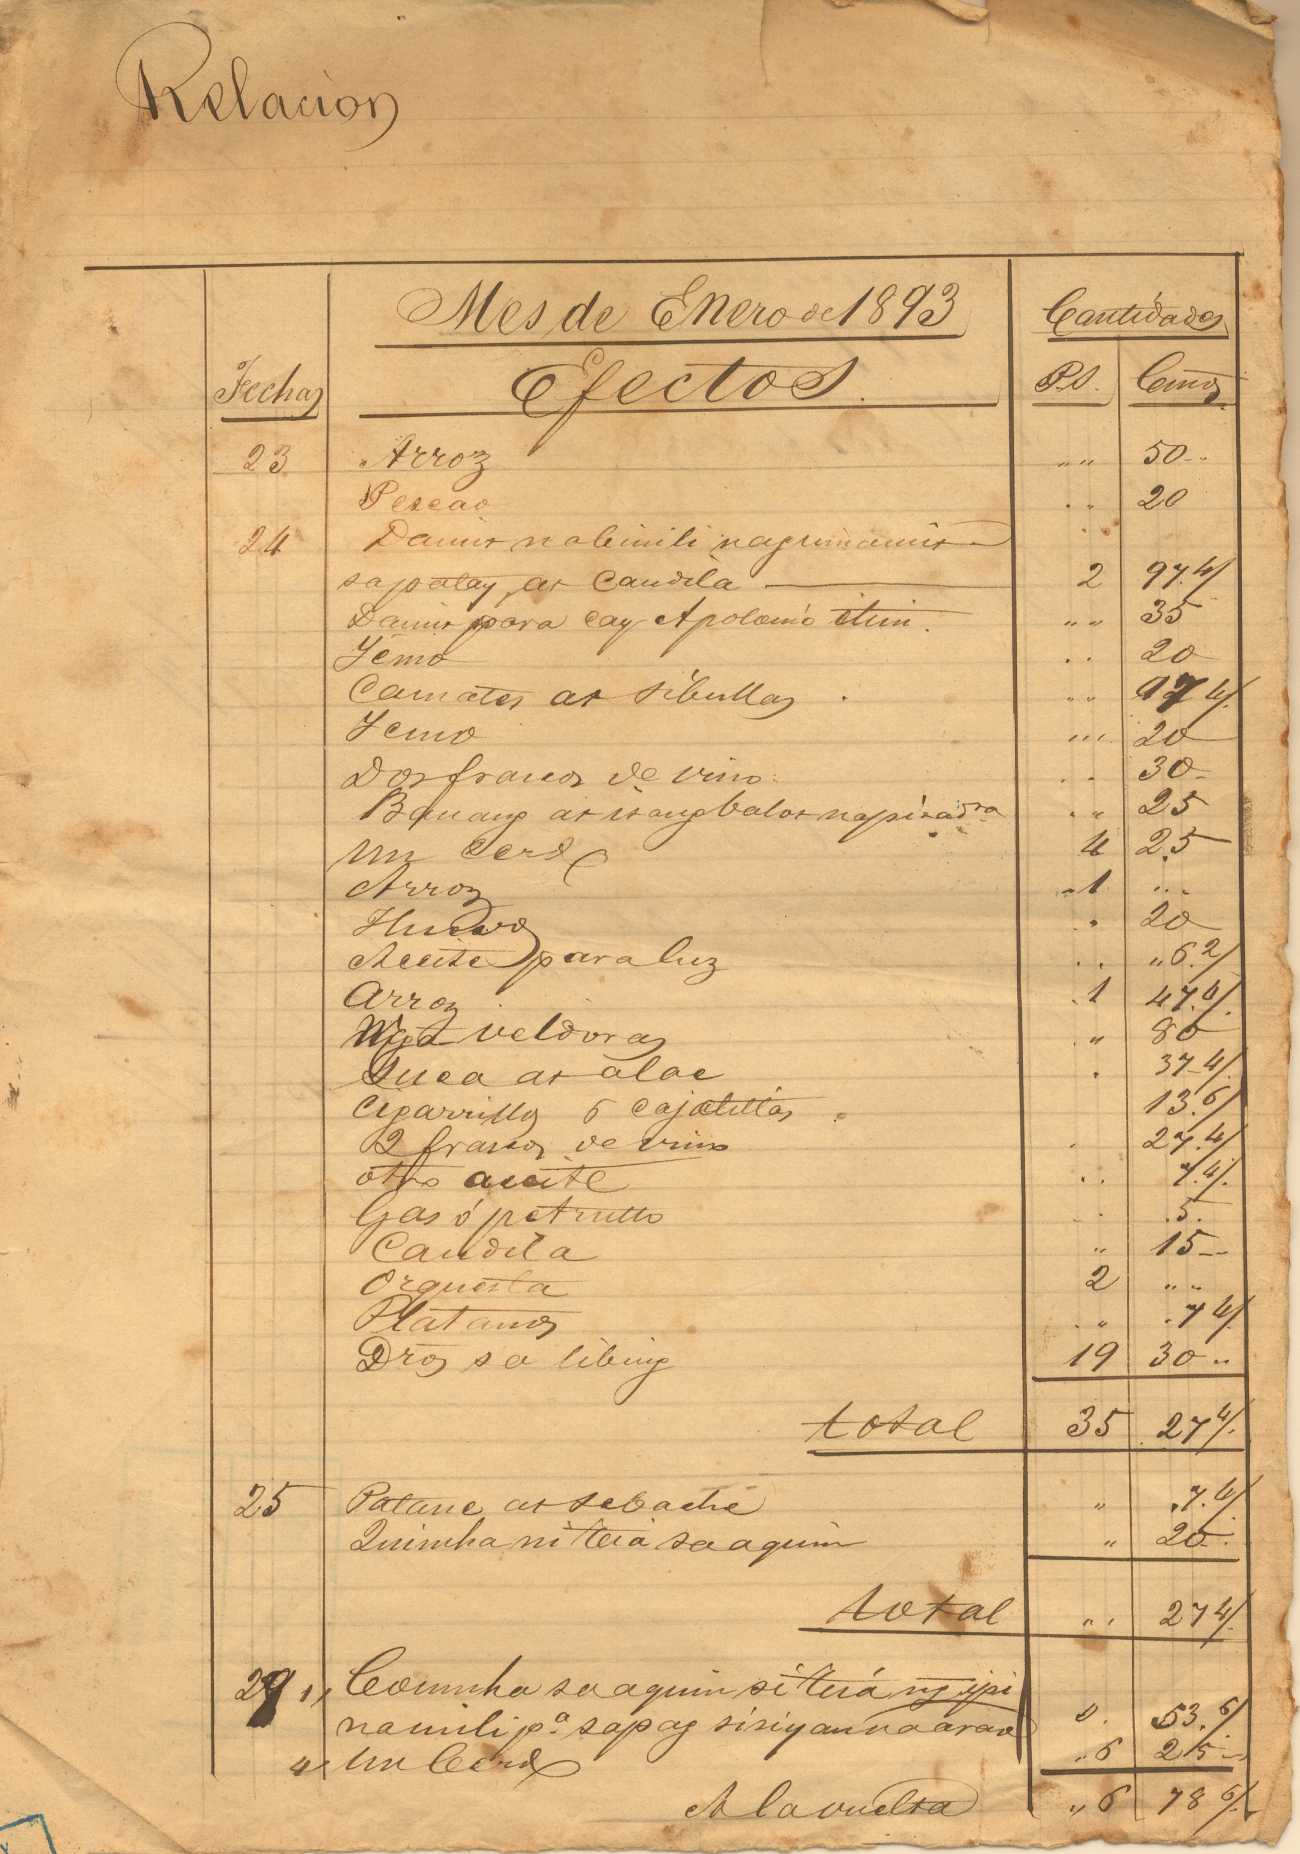 Relacion
Mes de Enero de 1893
Cantidades
Fechas
Efectos
P.s. Cmos.
23 Arroz „ „ 50
Pescao . . 20
24 Damit na binili nagun damit
sa patay, at Candila 2 97.4/
Damit para cay Apolonio itim. „ „ 35
Yemo . . 20
Camates at sibullas „ „ 17 4/.
Yemo „ „ 20
Dos frascos de vino . . 30
Bauang at isang balot na pisadra . „ 25
Un Cerdo 4 25
Arroz 1 . . .
Huevos . 20
Aceite para luz . . „ 6.2/
Arroz 1 47.4/.
Mga veldoras „ 80
Suca at alac . 37-4/.
Cigarrillos 6 cajatillas 13.6/
2 frascos de vino . 27.4/
otro aceite . . 7.4/.
Gas ó petrullo . . .5.
Candila „ 15
Orquesta 2 „ „
Platanos . „ .7 4/.
Dros sa libing 19 30 „
total 35 27 4/.
25 Patane at sebache „ .7.4/
Quinuha ni teiá sa aquin „ 20.
total „ . 27 4/.
29 1„ Coinuha sa aquin si teiá ng ipi
namili pa. sa pag sisiyam na arao . 53.6/.
4„ Un Cerdo „ 6 25
A la vuelta „ 6 78 6/.